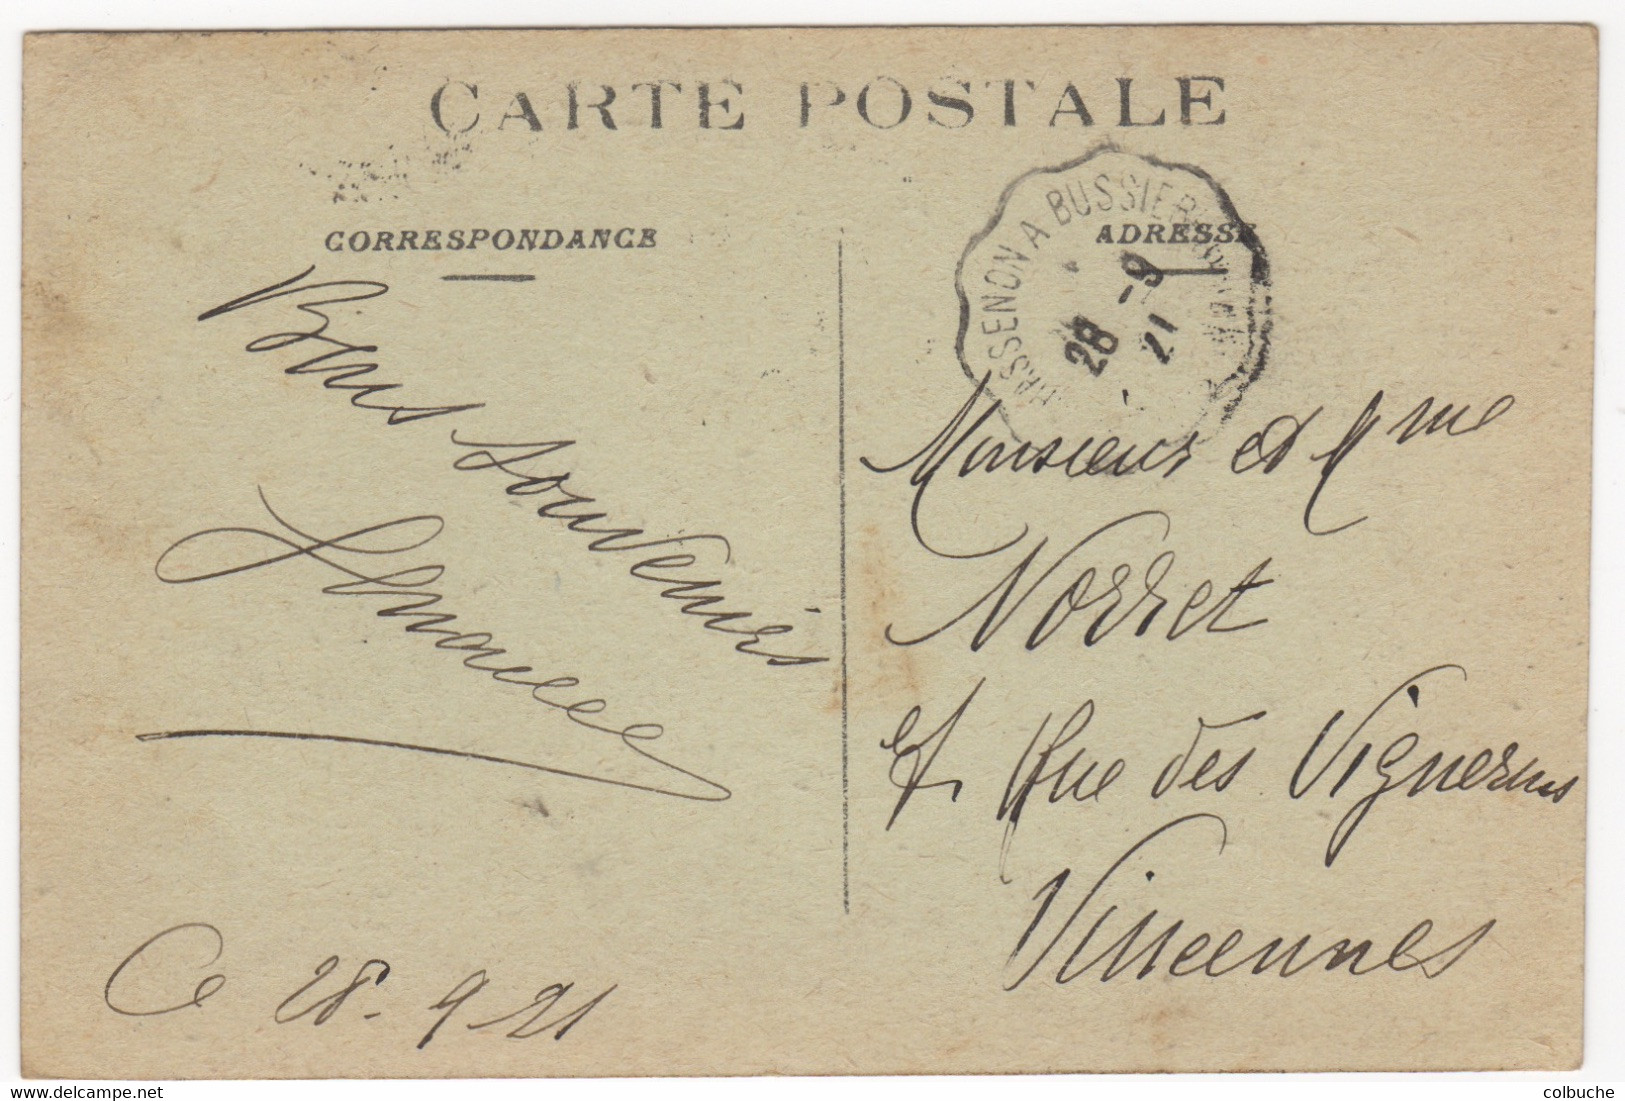 CARTE POSTALE
CORRESPONDANCE
Bons souvenirs
Ce 28-9 21
ADRESSE
HASSENON A BUSSIER
28 -9
21
Monsieur et Mme
Norret
Rue des Vignerons
Vincennes
colbuche